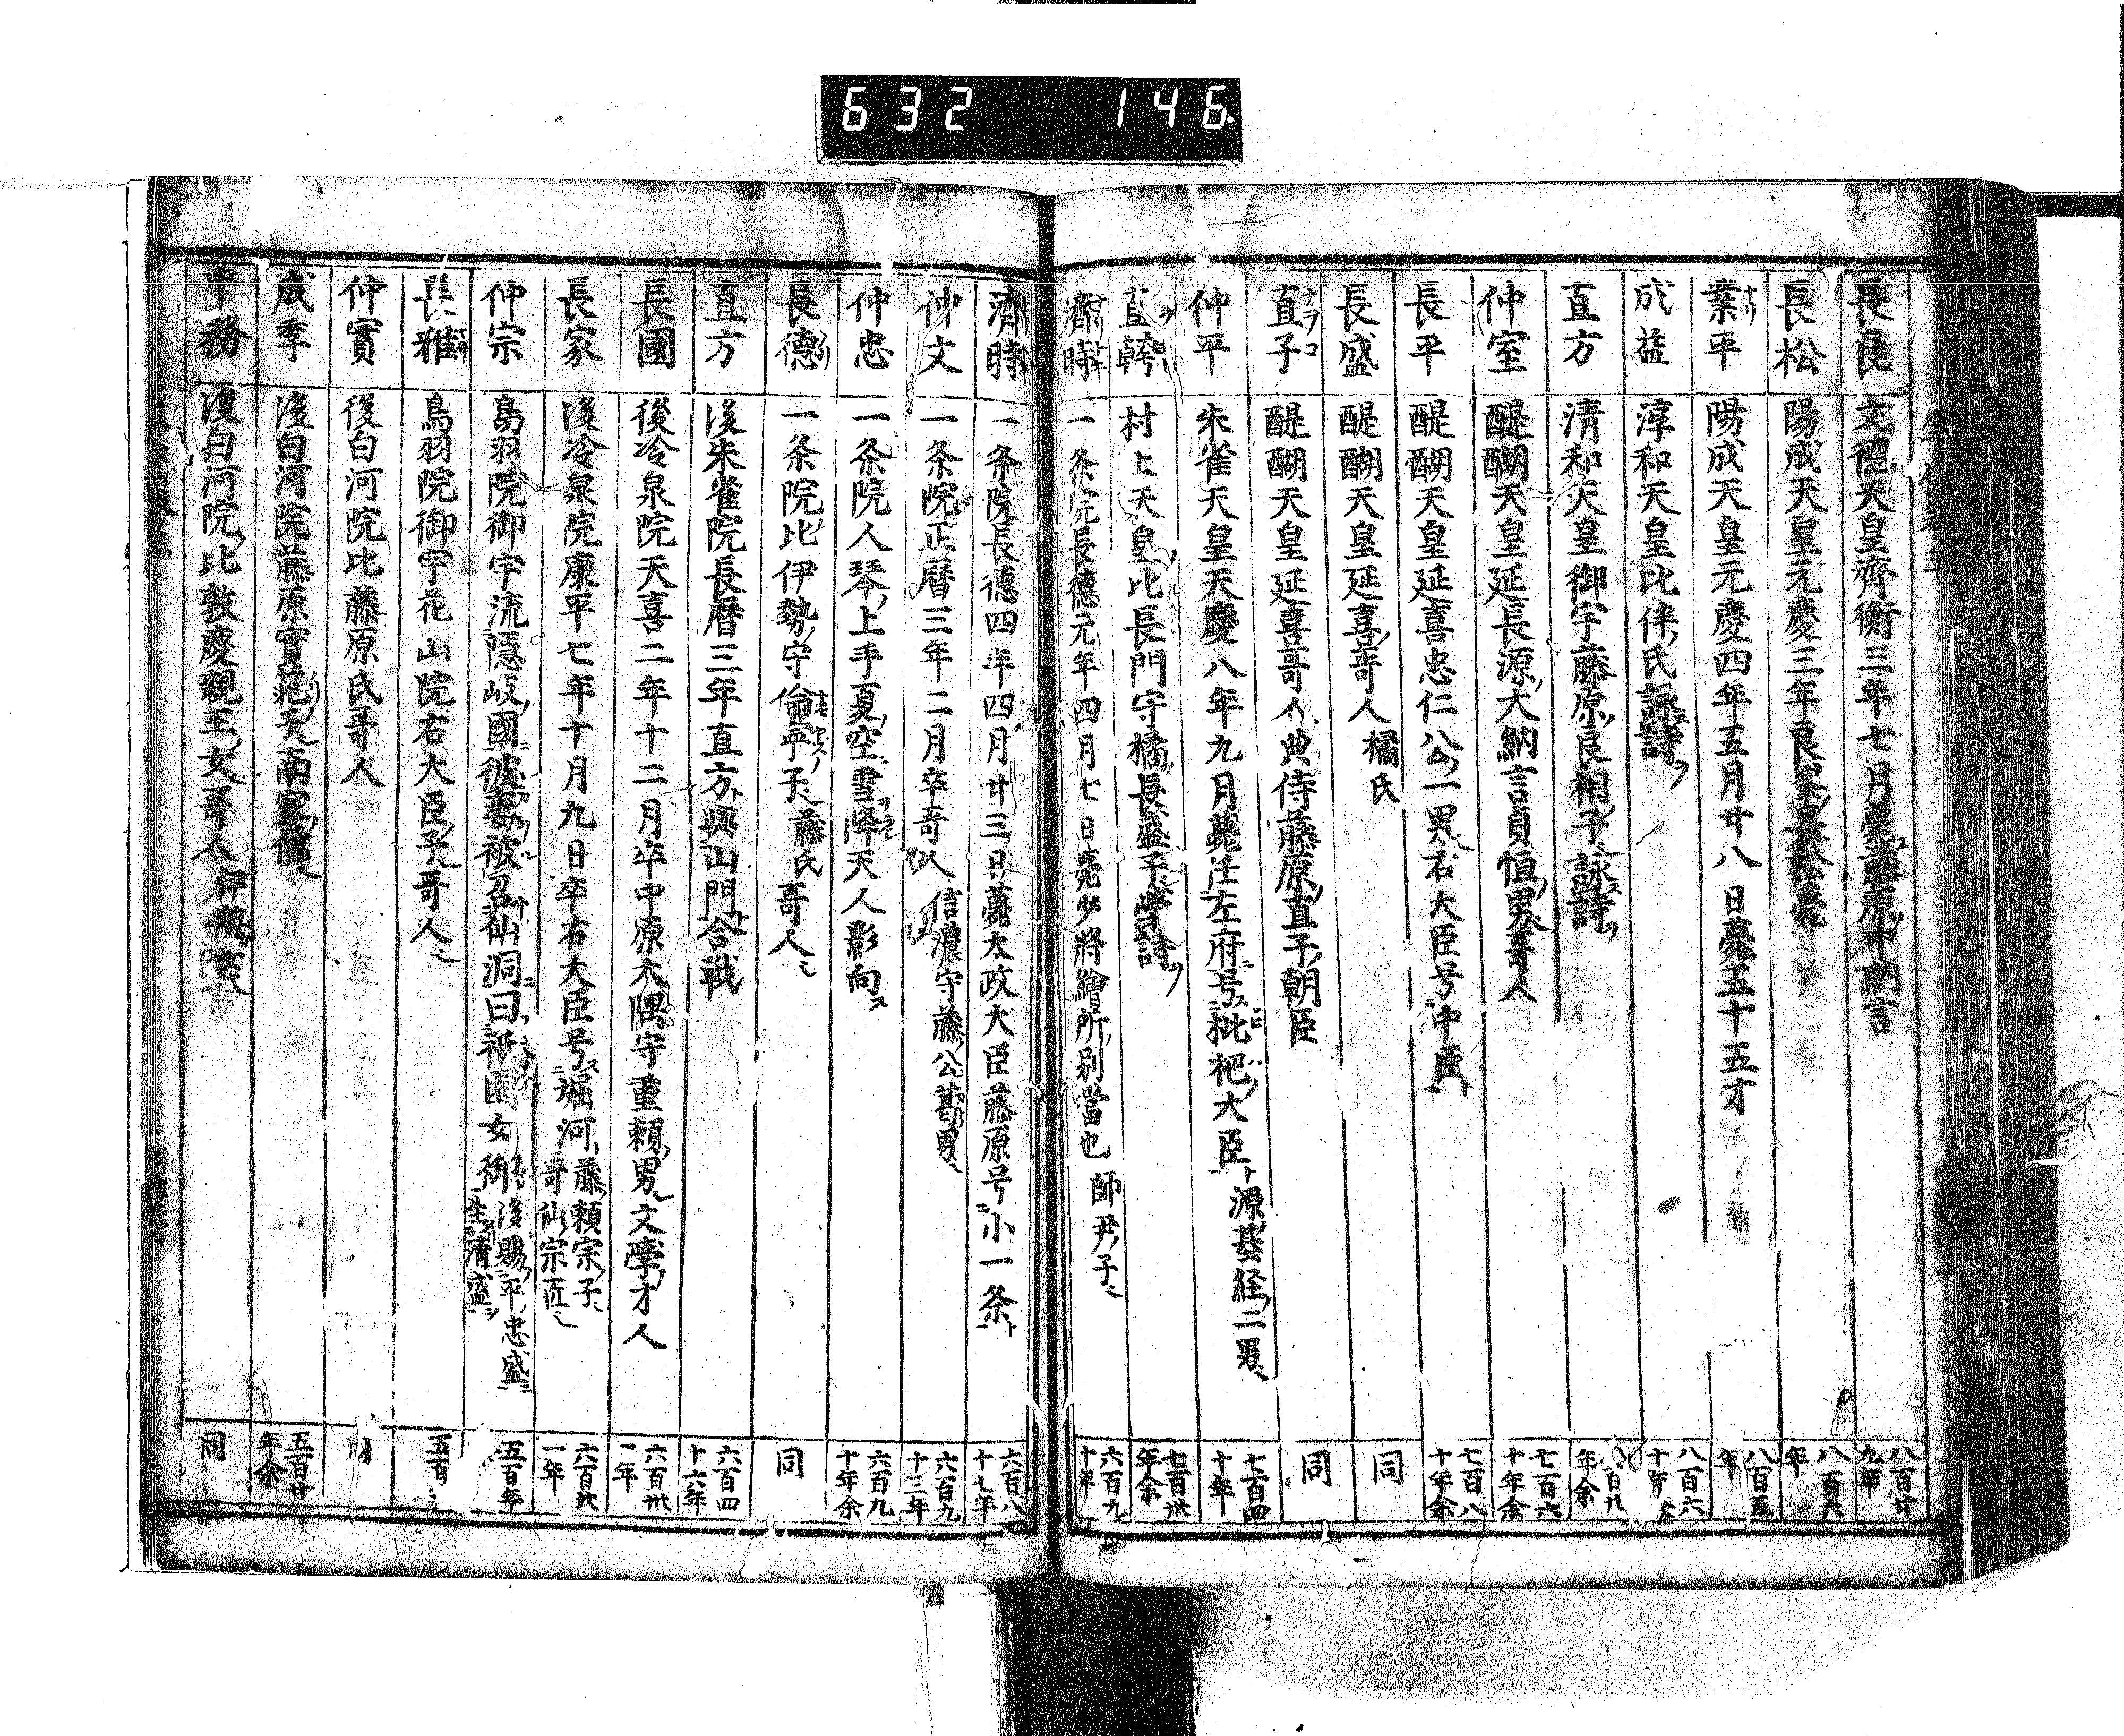 632 146.
長良 文德天皇齊衡三年七月薨藤原中納言 八百廿九年
長松 陽成天皇元慶三年良峯長松薨 八百六年
業平 陽成天皇元慶四年五月廿八日薨五十五才 八百五年
成益 淳和天皇比伴氏詠詩 八百六十年
直方 清和天皇御宇藤原良相子詠詩 年余
仲室 醍醐天皇延長源大納言貞恒男哥人 七百六十年余
長平 醍醐天皇延喜忠仁公一男右大臣号中臣 七百八十年余
長盛 醍醐天皇延喜哥人橘氏 同
直子 醍醐天皇延喜哥人典侍藤原直子朝臣 同
仲平 朱雀天皇天慶八年九月薨任左府号枇杷大臣源基経二男 七百四十年
直幹 村上天皇比長門守橘長盛子學詩 七百卅年余
濟時 一条院長德元年四月七日薨少將繪所別當也師尹子 六百九十年
濟時 一条院長德四年四月廿三日薨太政大臣藤原号小一条 六百八十七年
仲文 一条院正暦三年二月卒哥人信濃守藤公葛男 六百九十三年
仲忠 一条院人琴上手夏空雪降天人影向 六百九十年余
長德 一条院比伊勢守倫平子藤氏哥人 同
直方 後朱雀院長暦三年直方與山門合戦 六百四十六年
長國 後冷泉院天喜二年十二月卒中原大隅守重頼男文學才人 六百卅一年
長家 後冷泉院康平七年十月九日卒右大臣号堀河藤頼宗子哥仙宗匠 六百廿一年
仲宗 鳥羽院御宇流隱岐國彼妻被召仙洞曰祇園女御後賜平忠盛生清盛 五百年
長雅 鳥羽院御宇花山院右大臣子哥人 五百
仲實 後白河院比藤原氏哥人 同
成季 後白河院藤原實範子南家儒 五百廿年余
中務 後白河院比敦慶親王女哥人 同